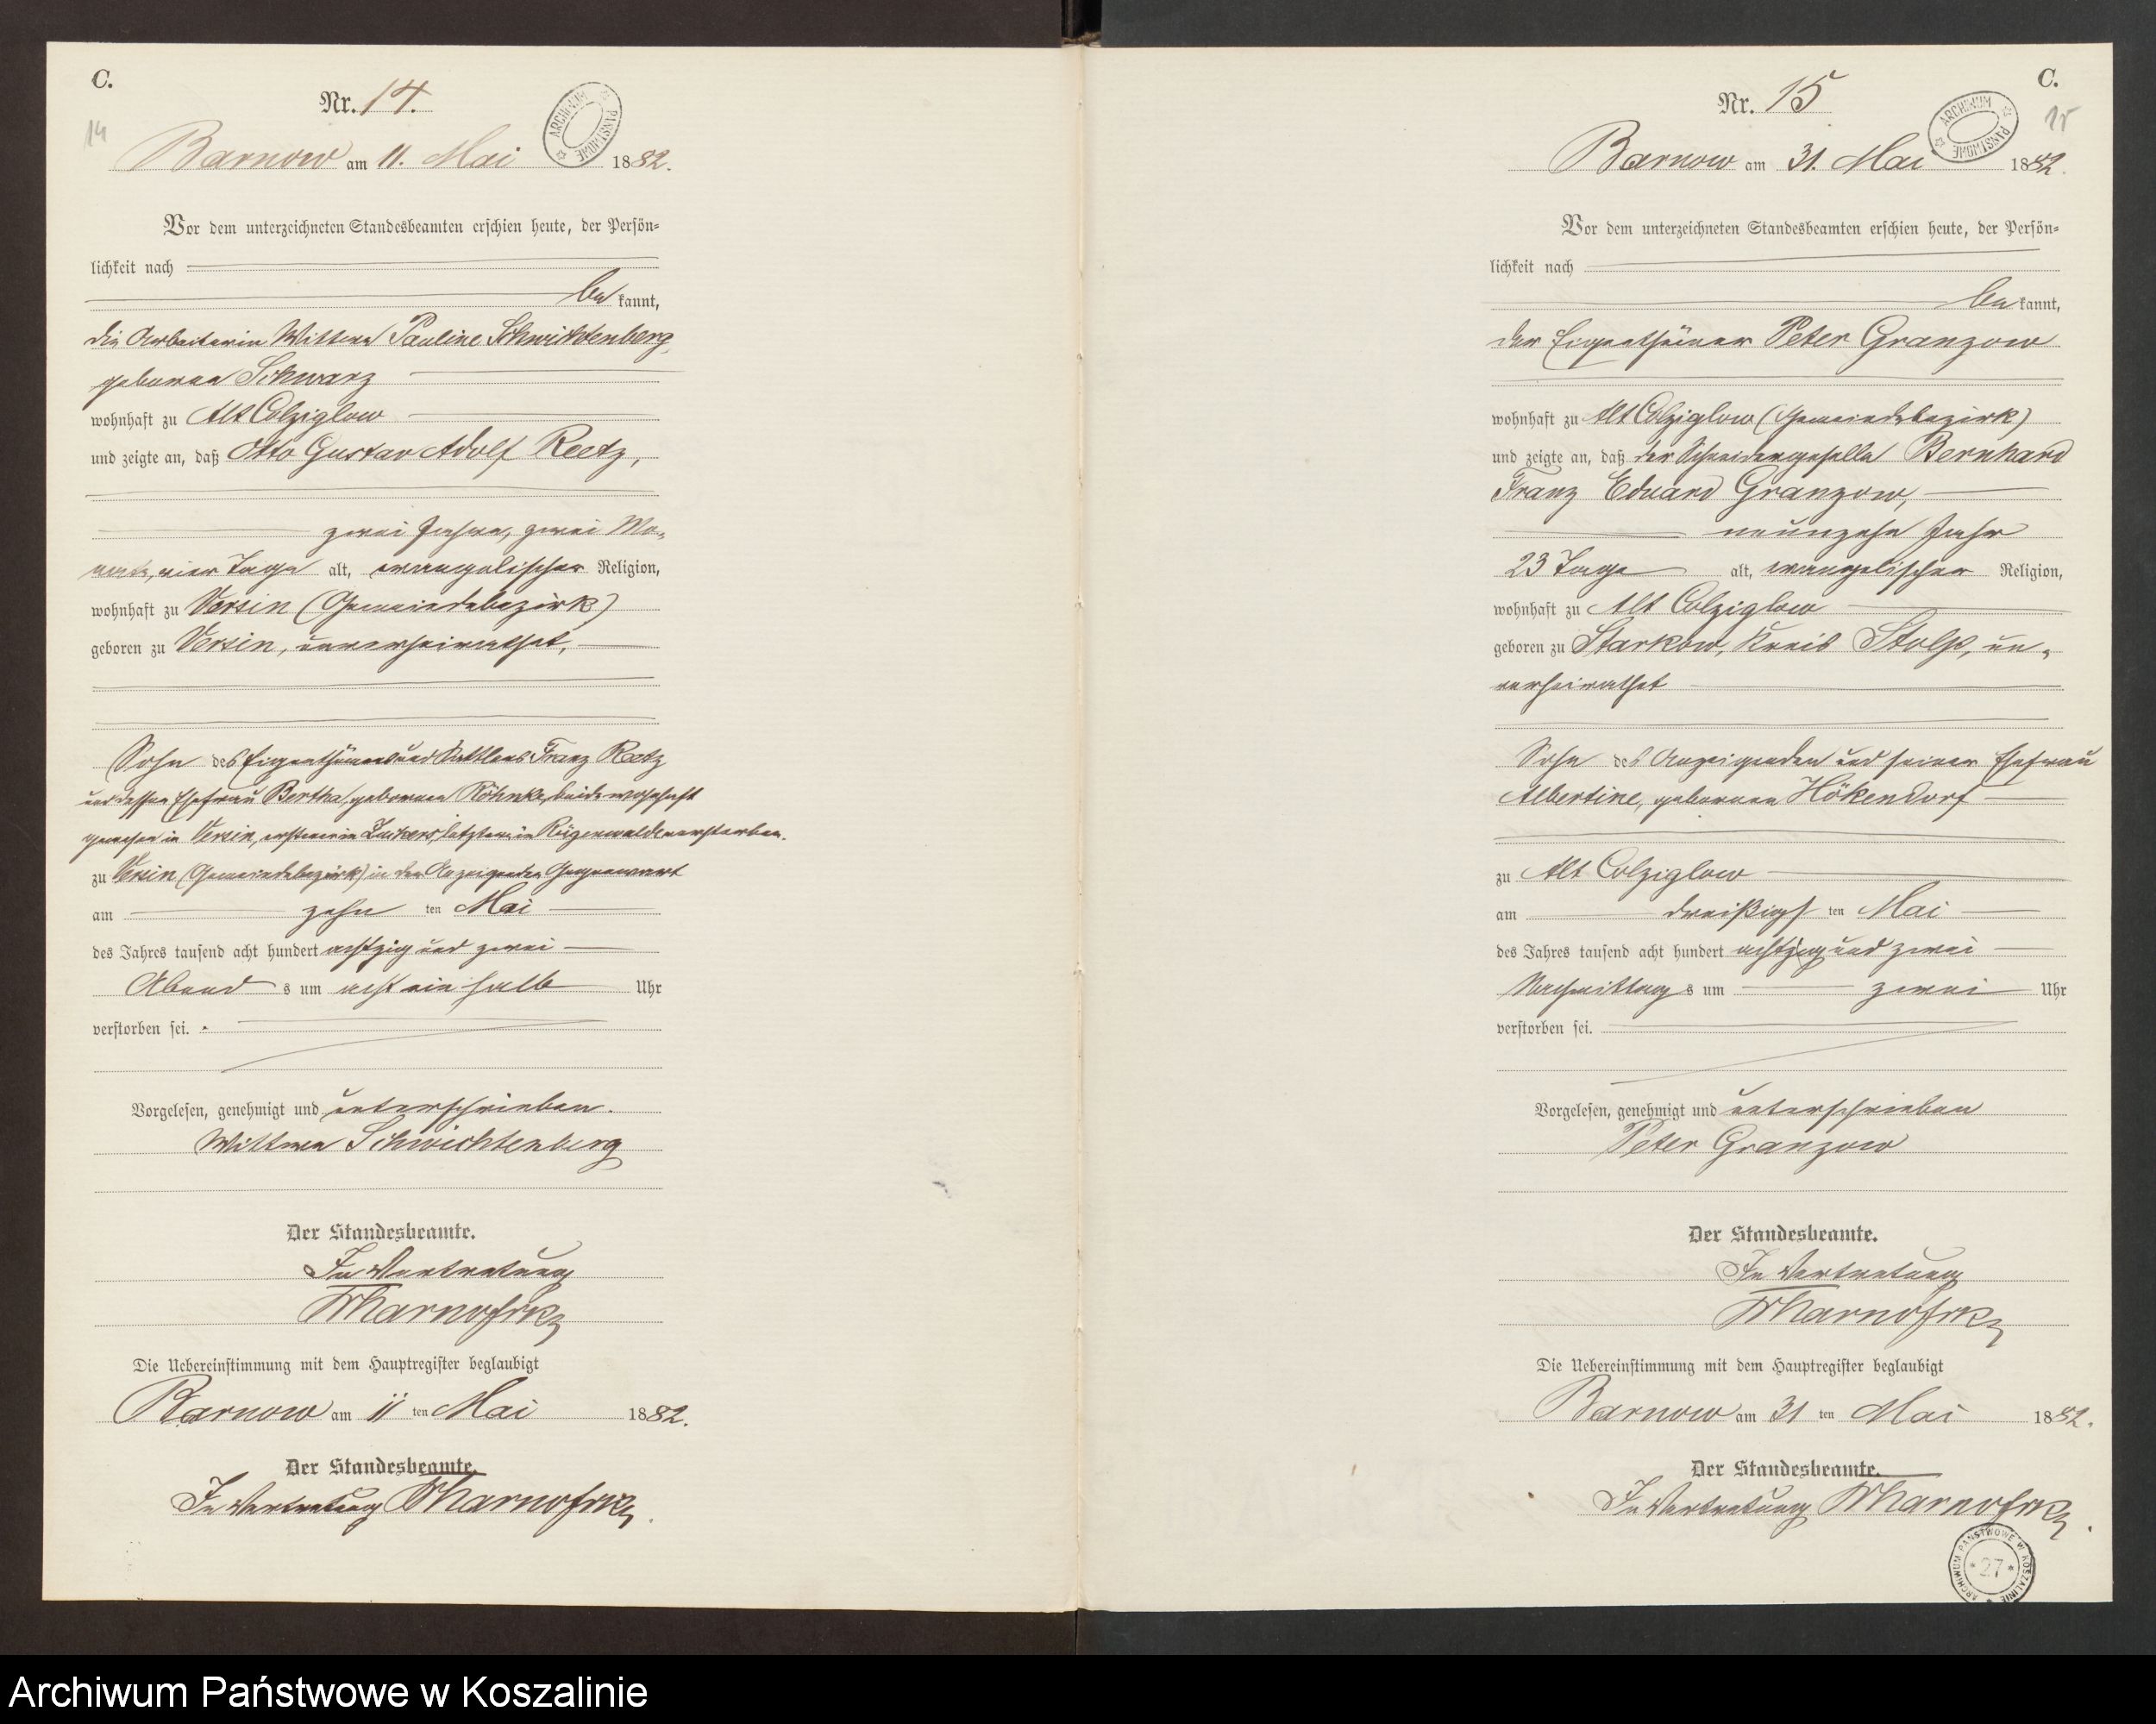 C.
Nr. 14.
14
ARCHIWUM PAŃSTWOWE
Barnow am 11. Mai 1882.
Vor dem unterzeichneten Standesbeamten erschien heute, der Persön-
lichkeit nach
be kannt,
die Arbeiterin Wittwe Pauline Schwichtenberg,
geborene Schwarz
wohnhaft zu Alt Colziglow
und zeigte an, daß Otto Gustav Adolf Reetz,
zwei Jahre, zwei Mo-
nate, vier Tage alt, evangelischer Religion,
wohnhaft zu Versin (Gemeindebezirk)
geboren zu Versin, unverheirathet,
Sohn des Eigenthümers und Sattlers Franz Reetz
und dessen Ehefrau Bertha, geborenen Röhnke, beide wohnhaft
gewesen in Versin, ersterer in letztere in Rügenwalde verstorben.
zu Versin (Gemeindebezirk) in der Anzeigenden Gegenwart
am zehn ten Mai
des Jahres tausend acht hundert achtzig und zwei
Abend s um acht ein halb Uhr
verstorben sei.
Vorgelesen, genehmigt und unterschrieben.
Wittwe Schwichtenberg
Der Standesbeamte.
In Vertretung
Die Uebereinstimmung mit dem Hauptregister beglaubigt
Barnow am 11 ten Mai 1882.
Der Standesbeamte.
In Vertretung
C.
Nr. 15
15
ARCHIWUM PAŃSTWOWE
Barnow am 31. Mai 1882.
Vor dem unterzeichneten Standesbeamten erschien heute, der Persön-
lichkeit nach
be kannt,
der Eigenthümer Peter Granzow
wohnhaft zu Alt Colziglow (Gemeindebezirk)
und zeigte an, daß der Schneidergeselle Bernhard
Franz Eduard Granzow,
neunzehn Jahr
23 Tage alt, evangelischer Religion,
wohnhaft zu Alt Colziglow
geboren zu Starkow, Kreis Stolp, un-
verheirathet
Sohn des Anzeigenden und seiner Ehefrau
Albertine, geborenen Hökendorf
zu Alt Colziglow
am dreißigs ten Mai
des Jahres tausend acht hundert achtzig und zwei
Nachmittag s um zwei Uhr
verstorben sei.
Vorgelesen, genehmigt und unterschrieben
Peter Granzow
Der Standesbeamte.
In Vertretung
Die Uebereinstimmung mit dem Hauptregister beglaubigt
Barnow am 31 ten Mai 1882.
Der Standesbeamte.
In Vertretung
ARCHIWUM PAŃSTWOWE W KOSZALINIE
* 27 *
Archiwum Państwowe w Koszalinie